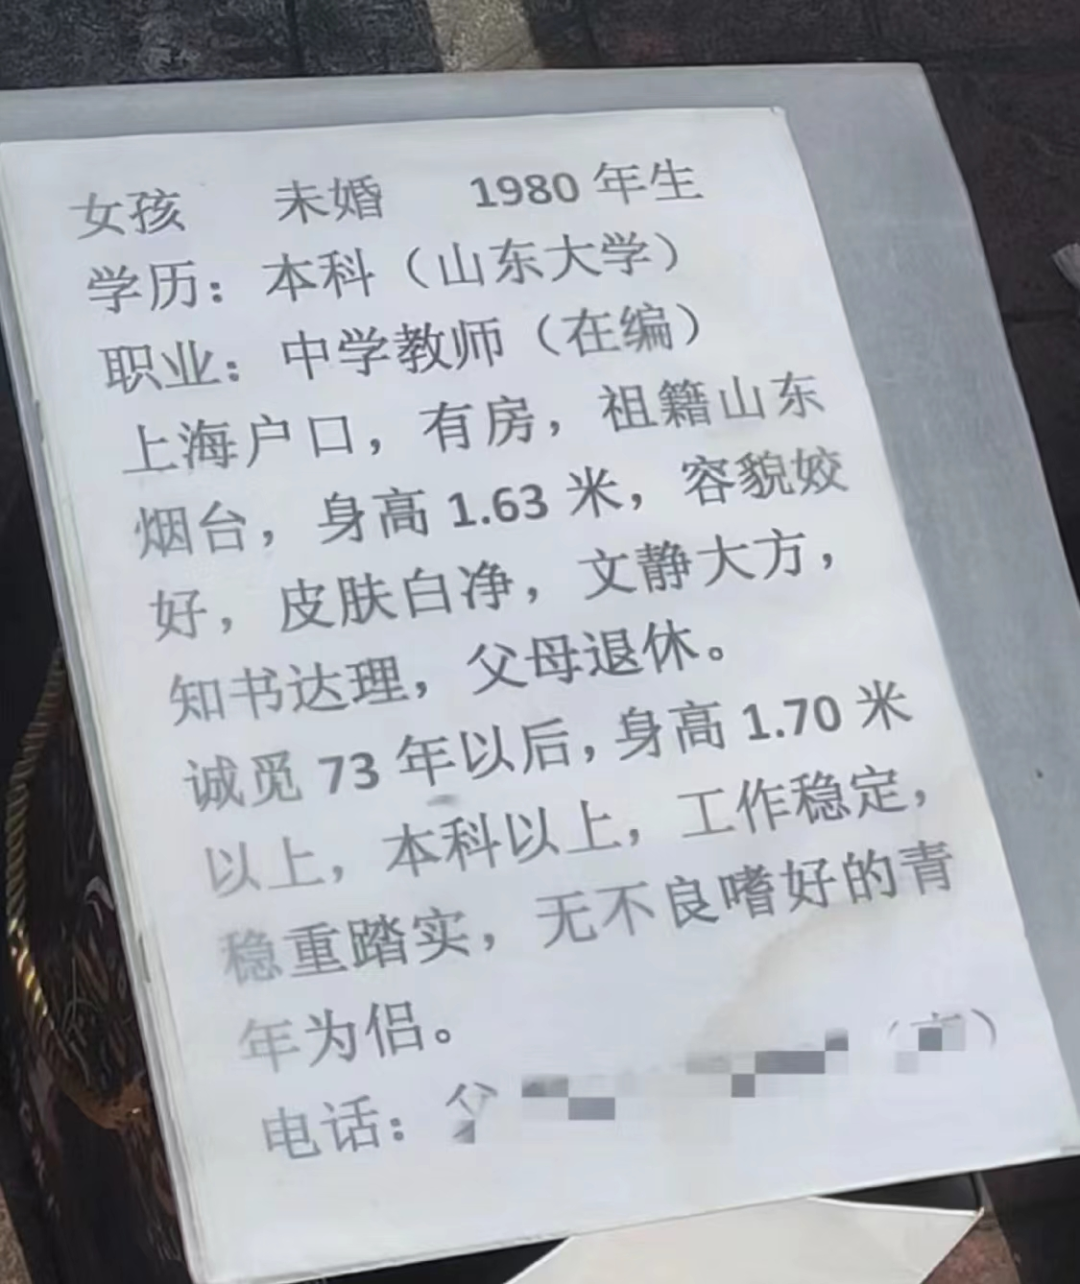 女孩 未婚 1980 年生
学历：本科（山东大学）
职业：中学教师（在编）
上海户口，有房，祖籍山东
烟台，身高 1.63 米，容貌姣
好，皮肤白净，文静大方，
知书达理，父母退休。
诚觅 73 年以后，身高 1.70 米
以上，本科以上，工作稳定，
稳重踏实，无不良嗜好的青
年为侣。
电话：